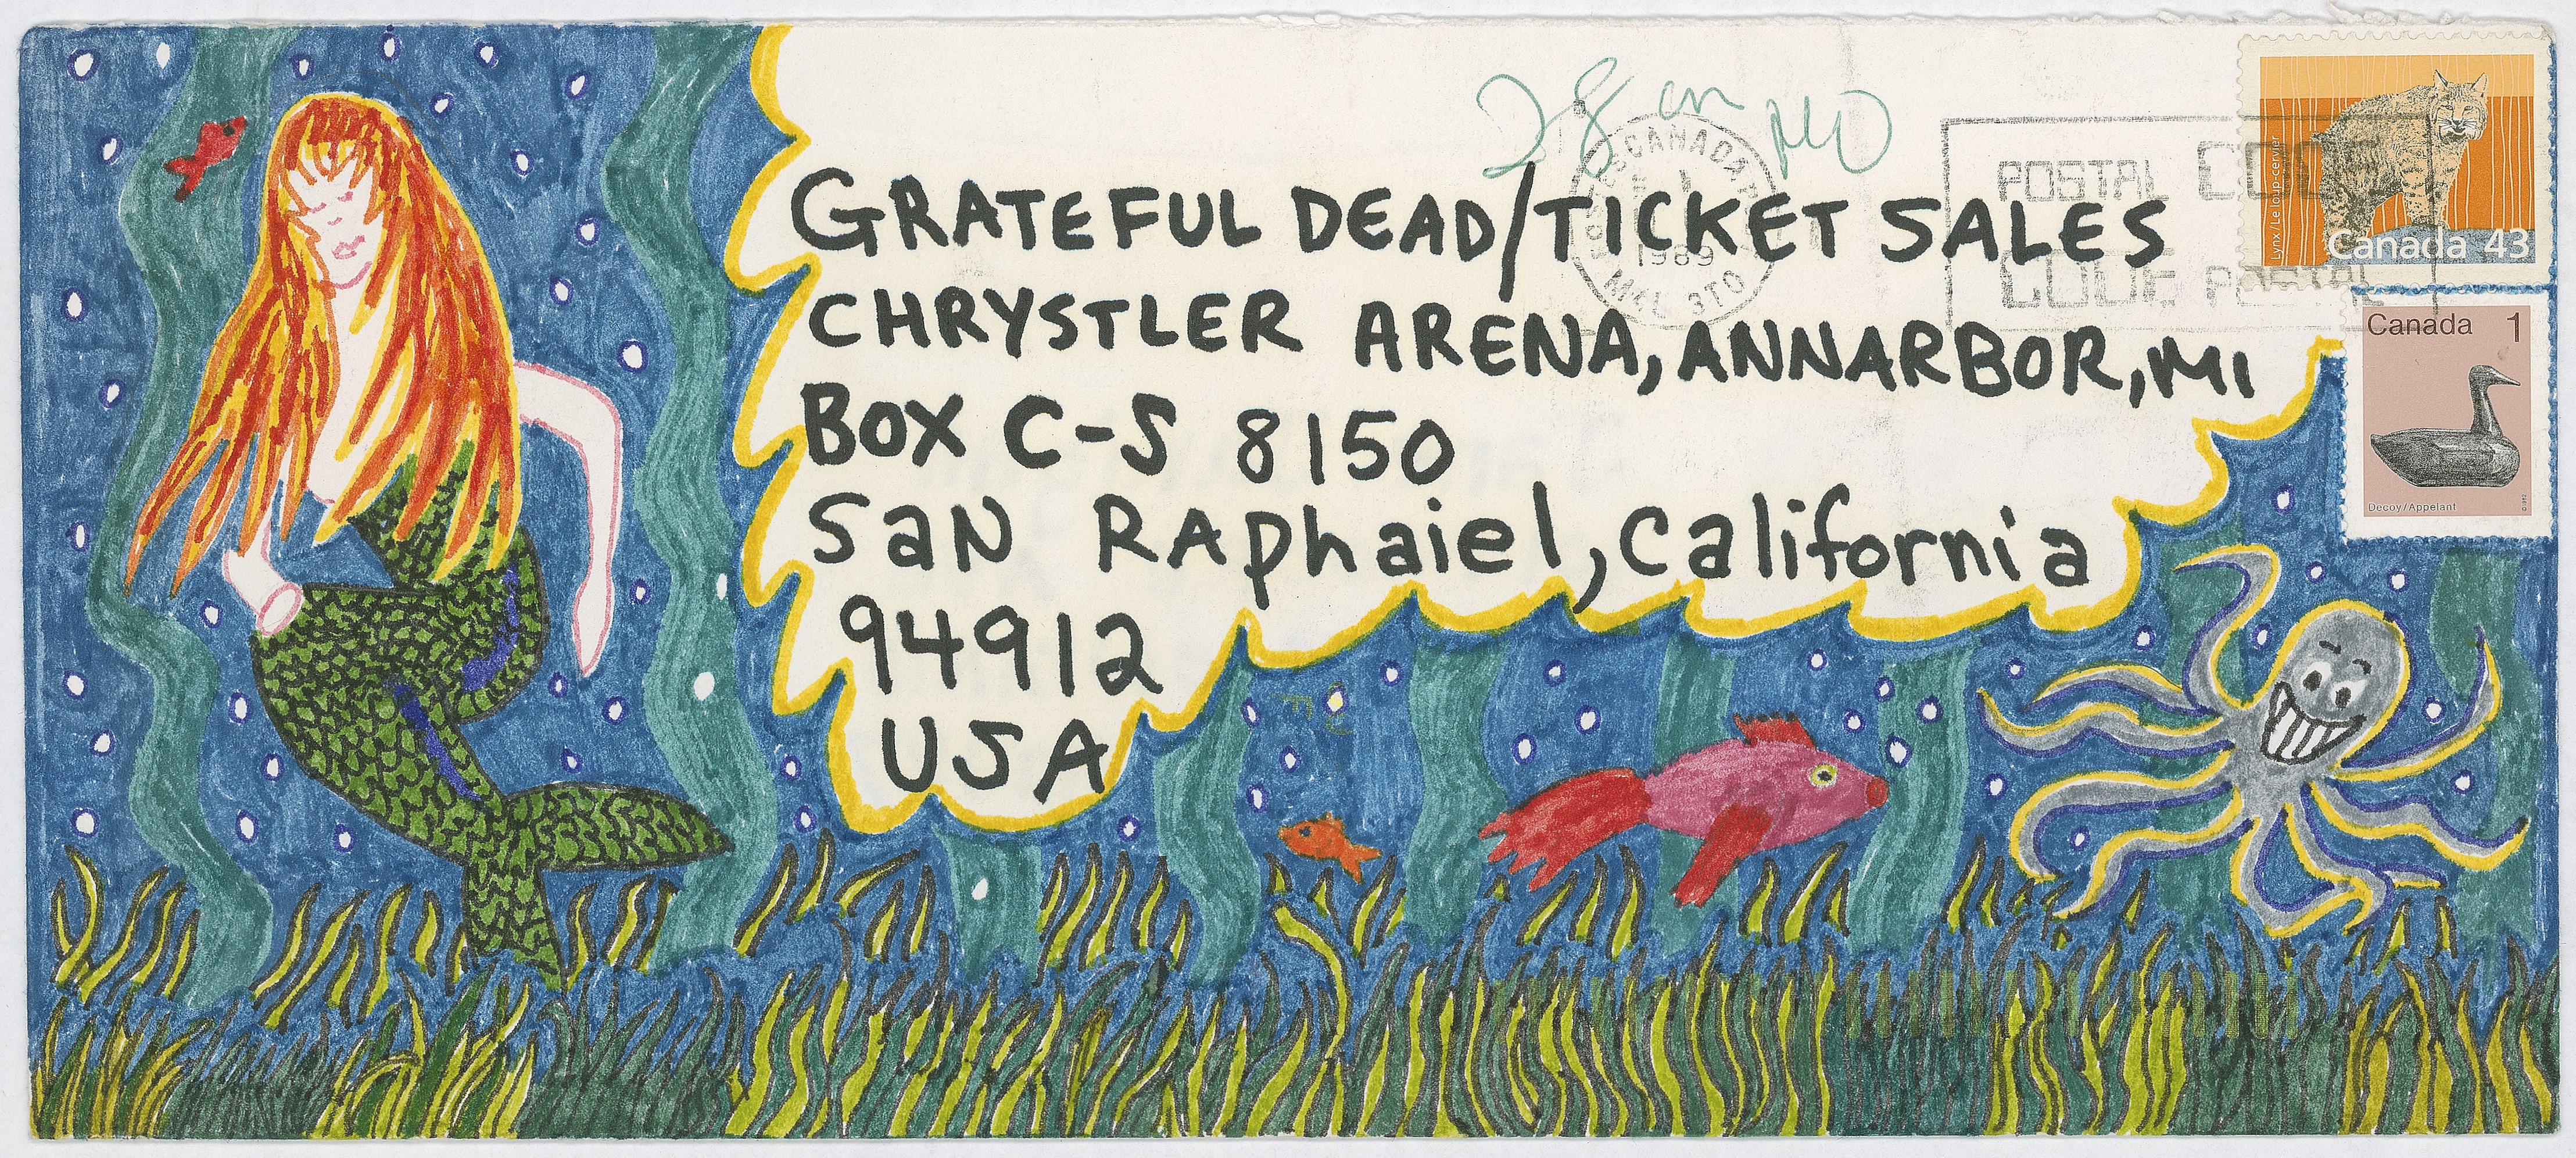 28 on MO
GRATEFUL DEAD/TICKET SALES
CHRYSTLER ARENA, ANNARBOR, MI
BOX C-S 8150
SaN RAphaiel, California
94912
USA
CANADA
1989
M4L 3T0
POSTAL CODE
CODE POSTAL
Lynx / Le loup-cervier
Canada 43
Canada 1
Decoy / Appelant